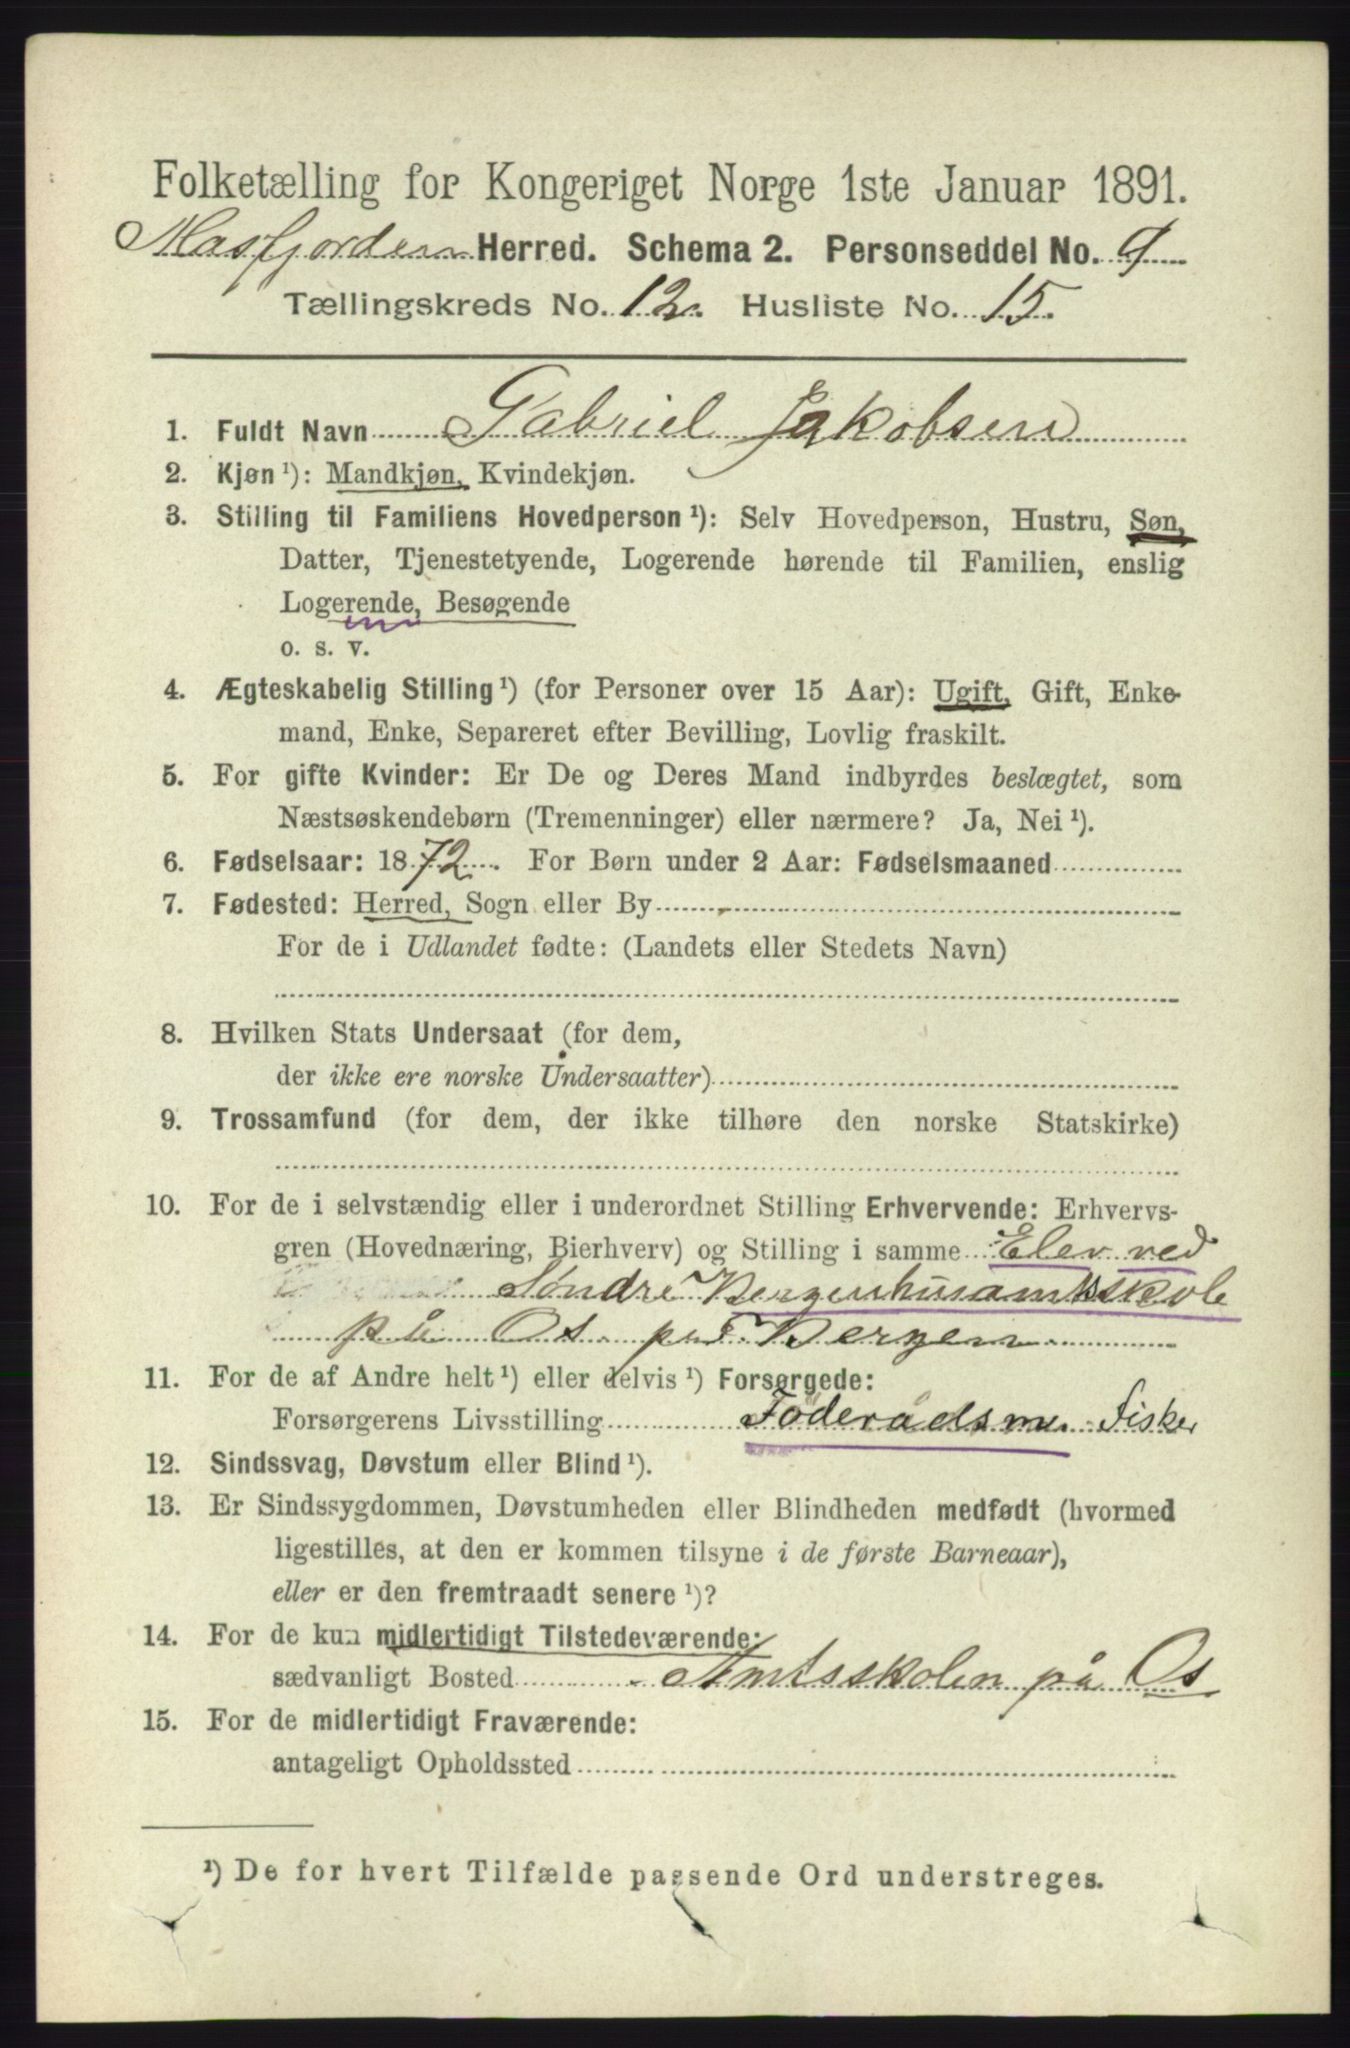 Folketælling for Kongeriget Norge 1ste Januar 1891.
Masfjorden Herred. Schema 2. Personseddel No. 9
Tællingskreds No. 12. Husliste No. 15.
1. Fuldt Navn Gabriel Jakobsen
2. Kjøn ¹): Mandkjøn, Kvindekjøn.
3. Stilling til Familiens Hovedperson ¹): Selv Hovedperson, Hustru, Søn,
Datter, Tjenestetyende, Logerende hørende til Familien, enslig
Logerende, Besøgende
o. s. v.
4. Ægteskabelig Stilling ¹) (for Personer over 15 Aar): Ugift, Gift, Enke-
mand, Enke, Separeret efter Bevilling, Lovlig fraskilt.
5. For gifte Kvinder: Er De og Deres Mand indbyrdes beslægtet, som
Næstsøskendebørn (Tremenninger) eller nærmere? Ja, Nei ¹).
6. Fødselsaar: 1872. For Børn under 2 Aar: Fødselsmaaned
7. Fødested: Herred, Sogn eller By
For de i Udlandet fødte: (Landets eller Stedets Navn)
8. Hvilken Stats Undersaat (for dem,
der ikke ere norske Undersaatter)
9. Trossamfund (for dem, der ikke tilhøre den norske Statskirke)
10. For de i selvstændig eller i underordnet Stilling Erhvervende: Erhvervs-
gren (Hovednæring, Bierhverv) og Stilling i samme Elev ved
Søndre Bergenhusamtsskole
på Os pr Bergen
11. For de af Andre helt ¹) eller delvis ¹) Forsørgede:
Forsørgerens Livsstilling Föderådsm. Fisker
12. Sindssvag, Døvstum eller Blind ¹).
13. Er Sindssygdommen, Døvstumheden eller Blindheden medfødt (hvormed
ligestilles, at den er kommen tilsyne i de første Barneaar),
eller er den fremtraadt senere ¹)?
14. For de kun midlertidigt Tilstedeværende:
sædvanligt Bosted Amtsskolen på Os
15. For de midlertidigt Fraværende:
antageligt Opholdssted
¹) De for hvert Tilfælde passende Ord understreges.